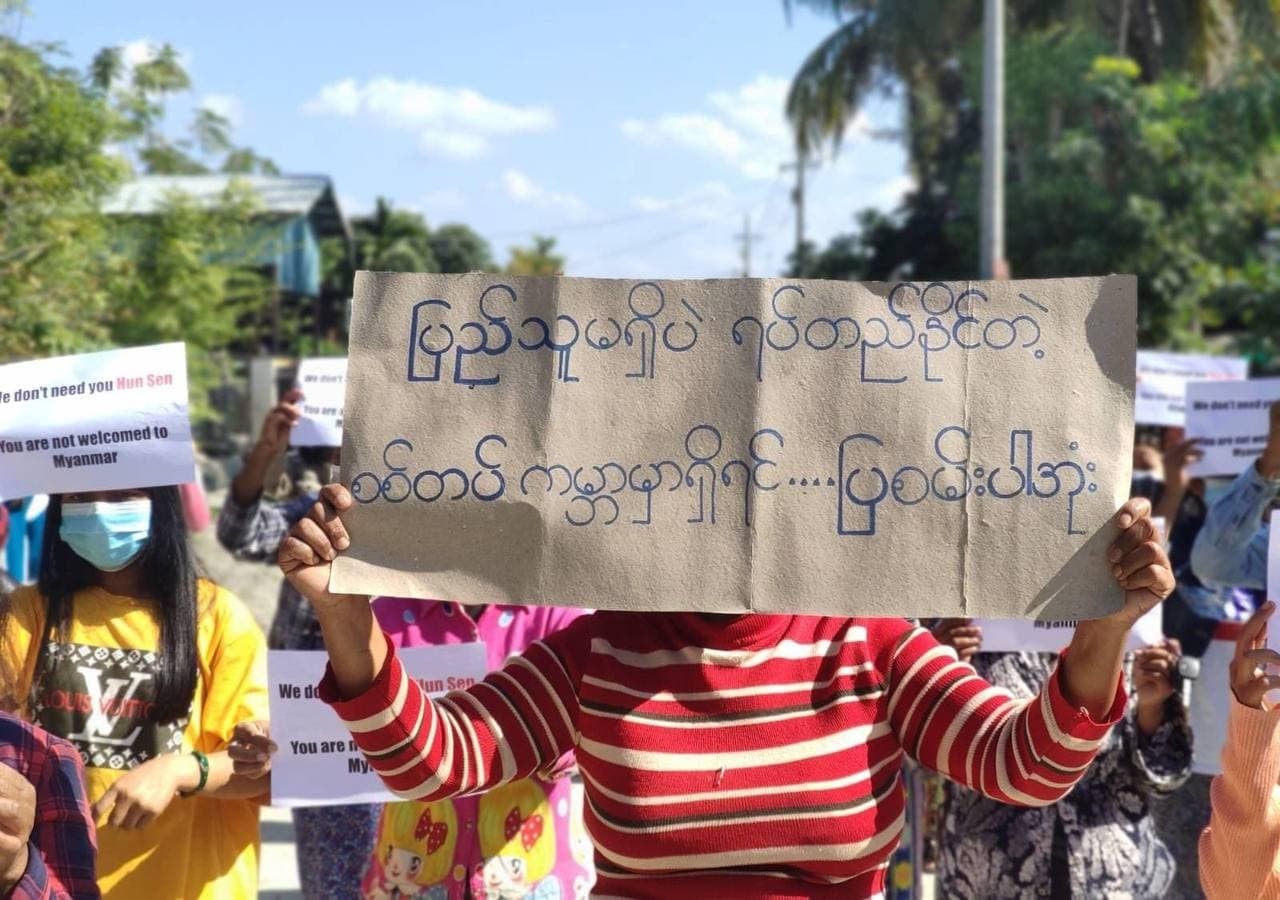 ပြည်သူမရှိပဲ ရပ်တည်နိုင်တဲ့
စစ်တပ် ကမ္ဘာမှာရှိရင်....ပြစမ်းပါအုံး
We don't need you Hun Sen
You are not welcomed to
Myanmar
We don't
You are
We do
Hun Sen
You are n
My
We don't need you
You are not
Myanm
LOUIS VUITTON